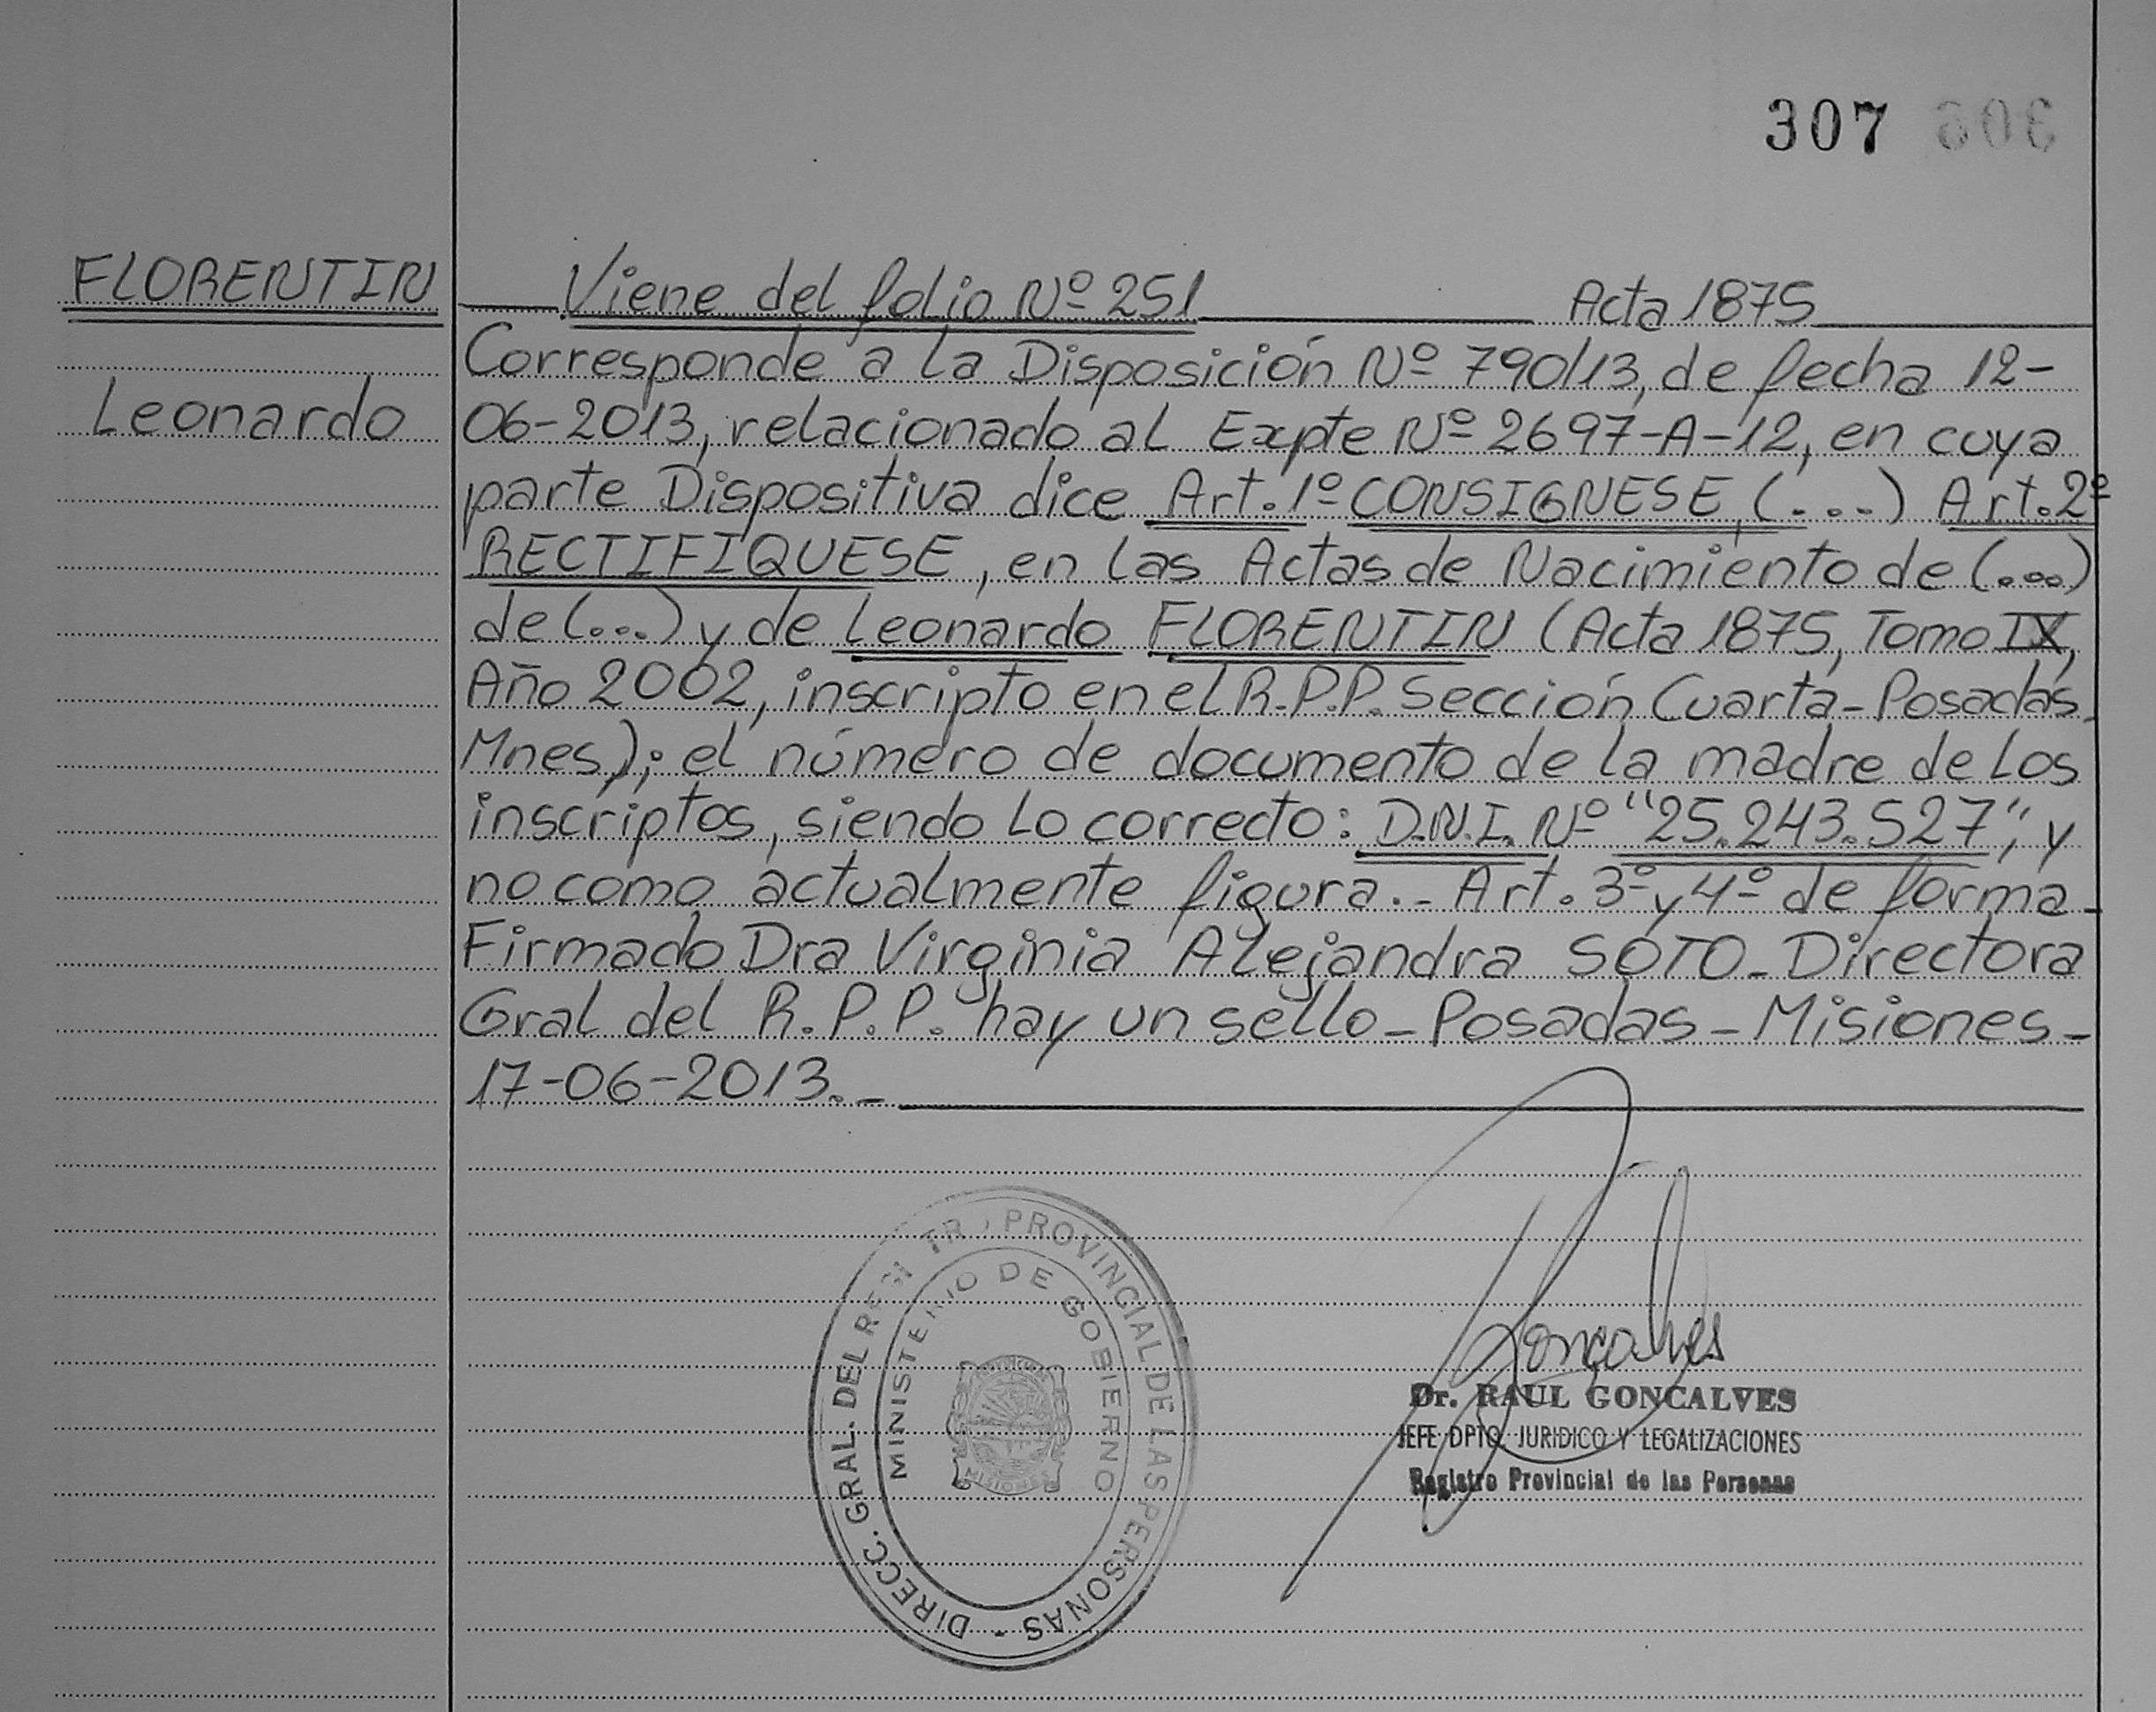 307 306
FLORENTIN
Leonardo
Viene del folio Nº 251 Acta 1875
Corresponde a la Disposición Nº 790/13, de fecha 12-
06-2013, relacionado al Expte Nº 2697-A-12, en cuya
parte Dispositiva dice Art. 1º CONSIGNESE, (...) Art. 2º
RECTIFIQUESE, en las Actas de Nacimiento de (...)
de (...) y de Leonardo FLORENTIN (Acta 1875, Tomo IX,
Año 2002, inscripto en el R.P.P. Sección Cuarta-Posadas,
Mnes.); el número de documento de la madre de los
inscriptos, siendo lo correcto: D.N.I. Nº "25.243.527", y
no como actualmente figura.- Art. 3º y 4º de forma-
Firmado Dra Virginia Alejandra SOTO-Directora
Gral del R.P.P. hay un sello-Posadas-Misiones-
17-06-2013.-
DIRECC. GRAL. DEL REGISTRO PROVINCIAL DE LAS PERSONAS -
MINISTERIO DE GOBIERNO
PROVINCIA
MISIONES
Goncalves
Dr. RAUL GONCALVES
JEFE DPTO. JURIDICO Y LEGALIZACIONES
Registro Provincial de las Personas